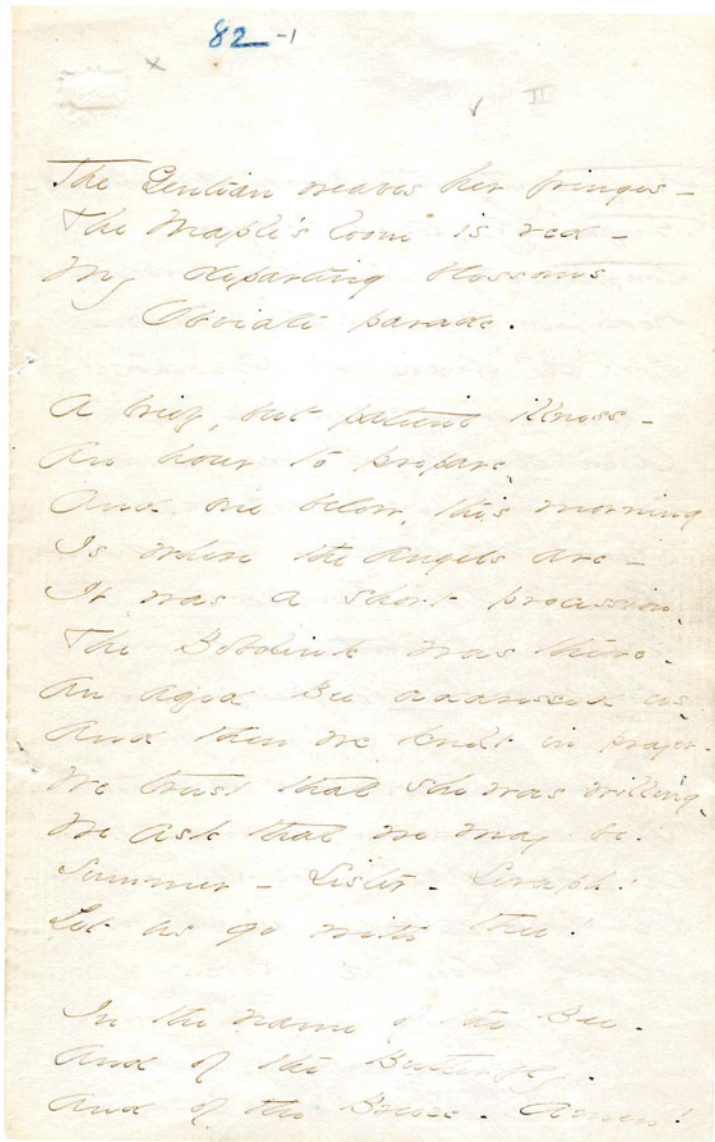 82-1
x
✓ III
The Gentian weaves her fringes -
The Maple's loom is red -
My departing blossoms
Obviate parade.
A brief, but patient illness -
An hour to prepare,
And one below, this morning
Is where the angels are -
It was a short procession,
The Bobolink was there -
An aged Bee addressed us,
And then we knelt in prayer -
We trust that she was willing,
We ask that we may be.
Summer - Sister - Seraph!
Let us go with thee!
In the name of the Bee -
And of the Butterfly -
And of the Breeze - Amen!